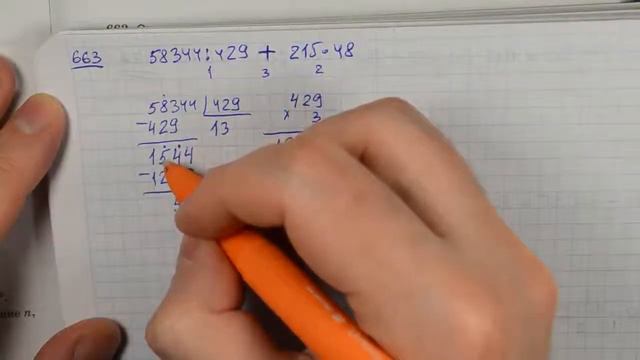 663 58344:429 + 215·48
1 3 2
58344 429
-429 13
1544
429
× 3
ние n,